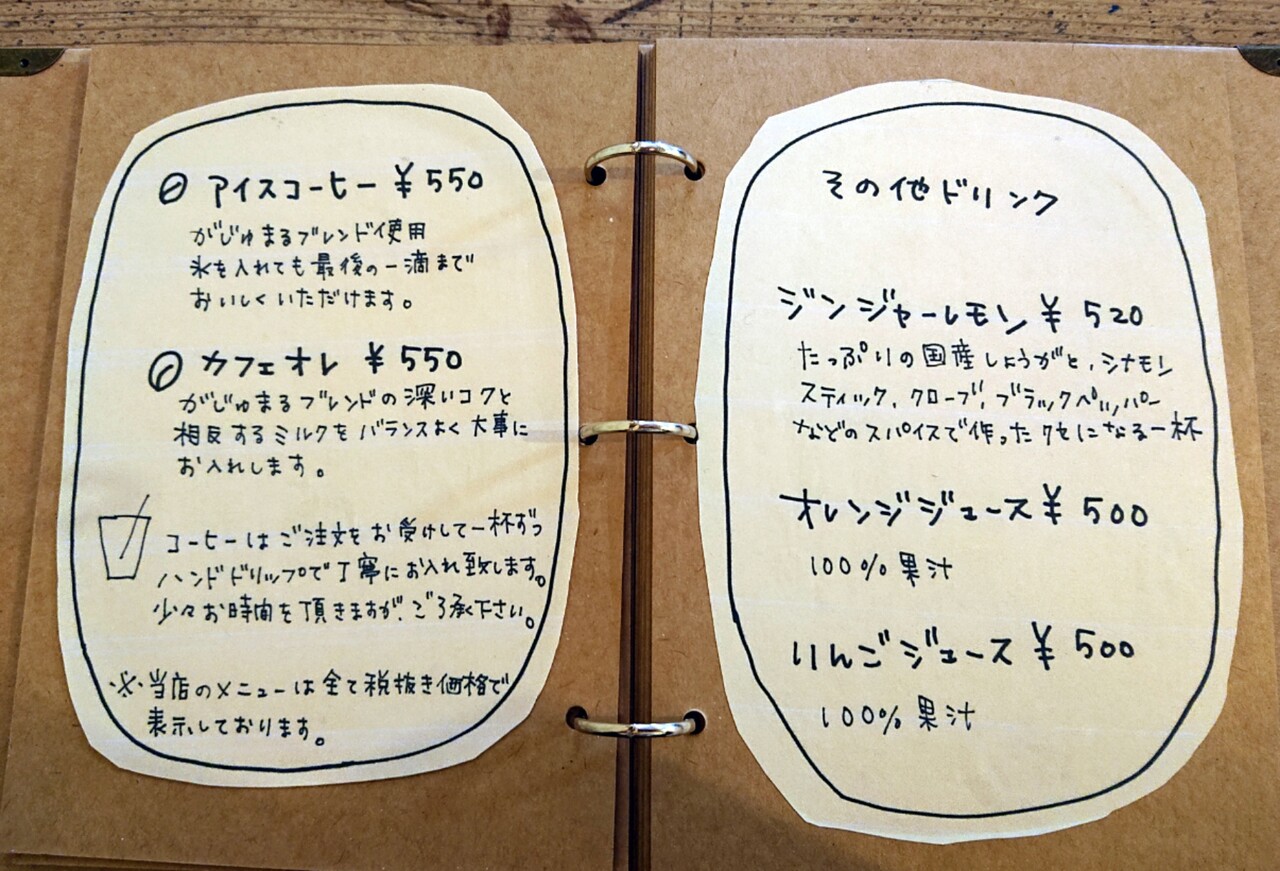 アイスコーヒー ¥550
がじゅまるブレンド使用
氷を入れても最後の一滴まで
おいしくいただけます。
カフェオレ ¥550
がじゅまるブレンドの深いコクと
相反するミルクをバランスよく大事に
お入れします。
コーヒーはご注文をお受けして一杯ずつ
ハンドドリップで丁寧にお入れ致します。
少々お時間を頂きますが、ご了承下さい。
※当店のメニューは全て税抜き価格で
表示しております。
その他ドリンク
ジンジャーレモン ¥520
たっぷりの国産しょうがと、シナモン
スティック、クローブ、ブラックペッパー
などのスパイスで作ったクセになる一杯
オレンジジュース ¥500
100%果汁
りんごジュース ¥500
100%果汁